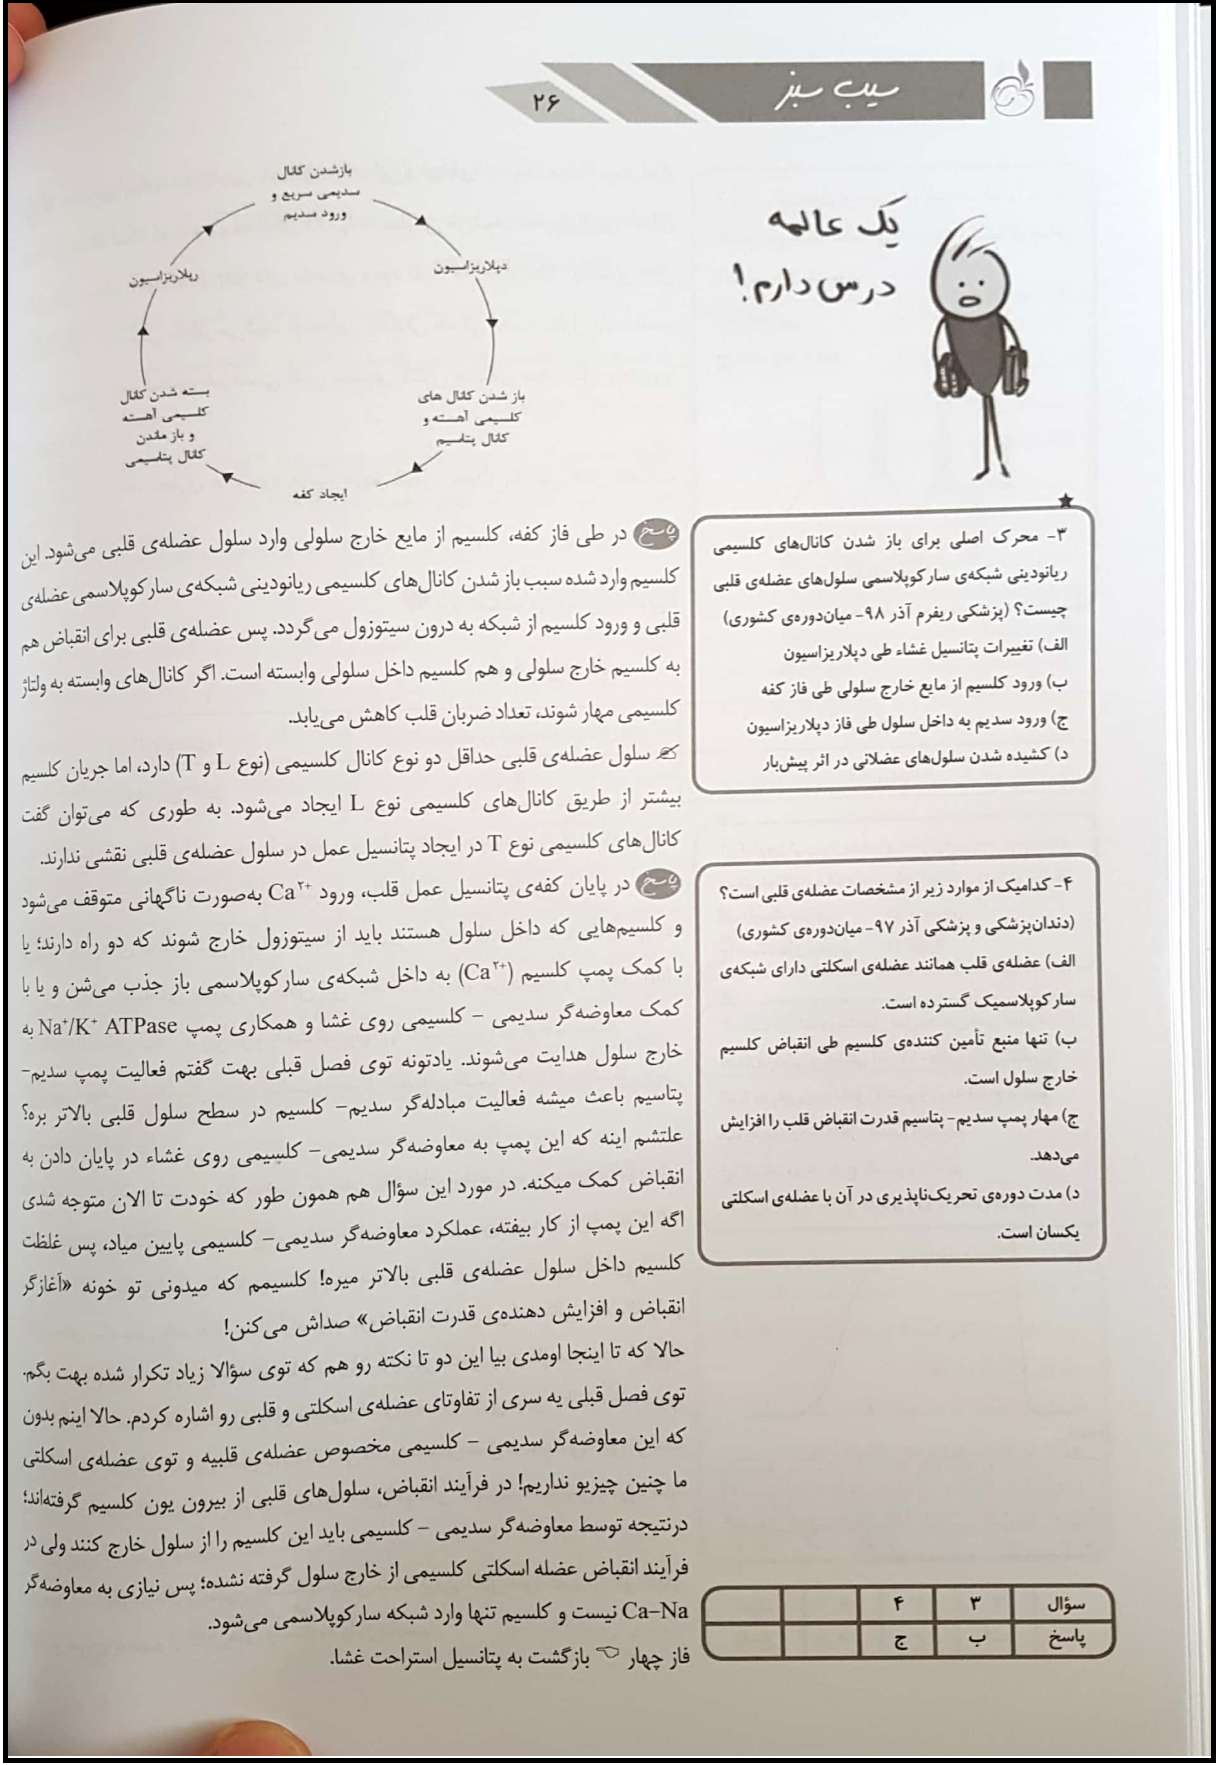 سیب سبز
۲۶
یک عالمه
درس دارم!
بازشدن کانال
سدیمی سریع و
ورود سدیم
دپلاریزاسیون
باز شدن کانال های
کلسیمی آهسته و
کانال پتاسیم
ایجاد کفه
بسته شدن کانال
کلسیمی آهسته
و باز ماندن
کانال پتاسیمی
رپلاریزاسیون
۳- محرک اصلی برای باز شدن کانال‌های کلسیمی
ریانودینی شبکه‌ی سارکوپلاسمی سلول‌های عضله‌ی قلبی
چیست؟ (پزشکی ریفرم آذر ۹۸- میان‌دوره‌ی کشوری)
الف) تغییرات پتانسیل غشاء طی دپلاریزاسیون
ب) ورود کلسیم از مایع خارج سلولی طی فاز کفه
ج) ورود سدیم به داخل سلول طی فاز دپلاریزاسیون
د) کشیده شدن سلول‌های عضلانی در اثر پیش‌بار
پاسخ در طی فاز کفه، کلسیم از مایع خارج سلولی وارد سلول عضله‌ی قلبی می‌شود. این
کلسیم وارد شده سبب باز شدن کانال‌های کلسیمی ریانودینی شبکه‌ی سارکوپلاسمی عضله‌ی
قلبی و ورود کلسیم از شبکه به درون سیتوزول می‌گردد. پس عضله‌ی قلبی برای انقباض هم
به کلسیم خارج سلولی و هم کلسیم داخل سلولی وابسته است. اگر کانال‌های وابسته به ولتاژ
کلسیمی مهار شوند، تعداد ضربان قلب کاهش می‌یابد.
سلول عضله‌ی قلبی حداقل دو نوع کانال کلسیمی (نوع L و T) دارد، اما جریان کلسیم
بیشتر از طریق کانال‌های کلسیمی نوع L ایجاد می‌شود. به طوری که می‌توان گفت
کانال‌های کلسیمی نوع T در ایجاد پتانسیل عمل در سلول عضله‌ی قلبی نقشی ندارند.
۴- کدامیک از موارد زیر از مشخصات عضله‌ی قلبی است؟
(دندان‌پزشکی و پزشکی آذر ۹۷- میان‌دوره‌ی کشوری)
الف) عضله‌ی قلب همانند عضله‌ی اسکلتی دارای شبکه‌ی
سارکوپلاسمیک گسترده است.
ب) تنها منبع تأمین کننده‌ی کلسیم طی انقباض کلسیم
خارج سلول است.
ج) مهار پمپ سدیم- پتاسیم قدرت انقباض قلب را افزایش
می‌دهد.
د) مدت دوره‌ی تحریک‌ناپذیری در آن با عضله‌ی اسکلتی
یکسان است.
پاسخ در پایان کفه‌ی پتانسیل عمل قلب، ورود Ca²⁺ به‌صورت ناگهانی متوقف می‌شود
و کلسیم‌هایی که داخل سلول هستند باید از سیتوزول خارج شوند که دو راه دارند؛ یا
با کمک پمپ کلسیم (Ca²⁺) به داخل شبکه‌ی سارکوپلاسمی باز جذب می‌شن و یا با
کمک معاوضه‌گر سدیمی – کلسیمی روی غشا و همکاری پمپ Na⁺/K⁺ ATPase به
خارج سلول هدایت می‌شوند. یادتونه توی فصل قبلی بهت گفتم فعالیت پمپ سدیم-
پتاسیم باعث میشه فعالیت مبادله‌گر سدیم- کلسیم در سطح سلول قلبی بالاتر بره؟
علتشم اینه که این پمپ به معاوضه‌گر سدیمی- کلسیمی روی غشاء در پایان دادن به
انقباض کمک میکنه. در مورد این سؤال هم همون طور که خودت تا الان متوجه شدی
اگه این پمپ از کار بیفته، عملکرد معاوضه‌گر سدیمی- کلسیمی پایین میاد، پس غلظت
کلسیم داخل سلول عضله‌ی قلبی بالاتر میره! کلسیمم که میدونی تو خونه «آغازگر
انقباض و افزایش دهنده‌ی قدرت انقباض» صداش می‌کنن!
حالا که تا اینجا اومدی بیا این دو تا نکته رو هم که توی سؤالا زیاد تکرار شده بهت بگم.
توی فصل قبلی یه سری از تفاوتای عضله‌ی اسکلتی و قلبی رو اشاره کردم. حالا اینم بدون
که این معاوضه‌گر سدیمی – کلسیمی مخصوص عضله‌ی قلبیه و توی عضله‌ی اسکلتی
ما چنین چیزیو نداریم! در فرآیند انقباض، سلول‌های قلبی از بیرون یون کلسیم گرفته‌اند؛
درنتیجه توسط معاوضه‌گر سدیمی – کلسیمی باید این کلسیم را از سلول خارج کنند ولی در
فرآیند انقباض عضله اسکلتی کلسیمی از خارج سلول گرفته نشده؛ پس نیازی به معاوضه‌گر
Ca–Na نیست و کلسیم تنها وارد شبکه سارکوپلاسمی می‌شود.
فاز چهار بازگشت به پتانسیل استراحت غشا.
سؤال ۳ ۴
پاسخ ب ج